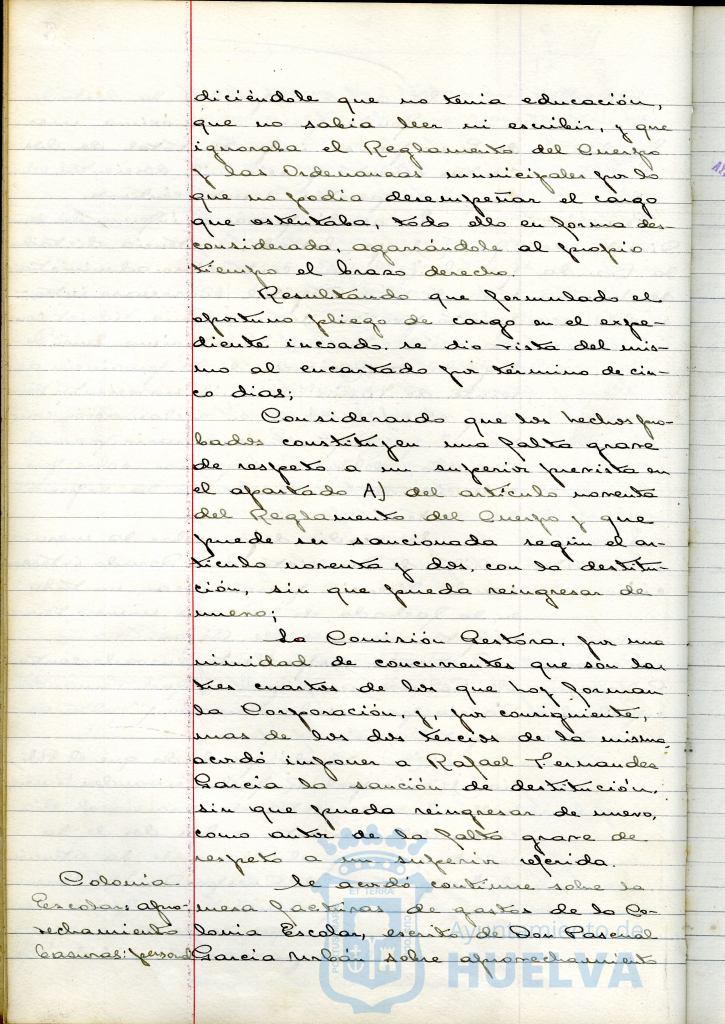 diciéndole que no tenia educación,
que no sabia leer ni escribir, y que
ignoraba el Reglamento del Cuerpo
y las Ordenanzas municipales por lo
que no podia desempeñar el cargo
que ostentaba, todo ello en forma des-
considerada, agarrándole al propio
tiempo el brazo derecho.
Resultando que formulado el
oportuno pliego de cargo en el expe-
diente incoado, se dio vista del mis-
mo al encartado por término de cin-
co dias;
Considerando que los hechos pro-
bados constituyen una falta grave
de respeto a un superior prevista en
el apartado A) del artículo noventa
del Reglamento del Cuerpo y que
puede ser sancionada según el ar-
tículo noventa y dos, con la destitu-
ción, sin que pueda reingresar de
nuevo;
La Comisión Gestora, por una
nimidad de concurrentes que son las
tres cuartos de los que hoy forman
la Corporación, y, por consiguiente,
mas de los dos tercios de la misma,
acordó imponer a Rafael Fernandez
Garcia la sanción de destitución,
sin que pueda reingresar de nuevo,
como autor de la falta grave de
respeto a un superior referida.
Colonia
Escolar: apro-
vechamiento
basuras: personal
Se acordó continue sobre la
mesa facturas de gastos de la Co-
lonia Escolar, escrito de Don Pascual
Garcia Urbán sobre aprovechamiento
Ayuntamiento de
HUELVA